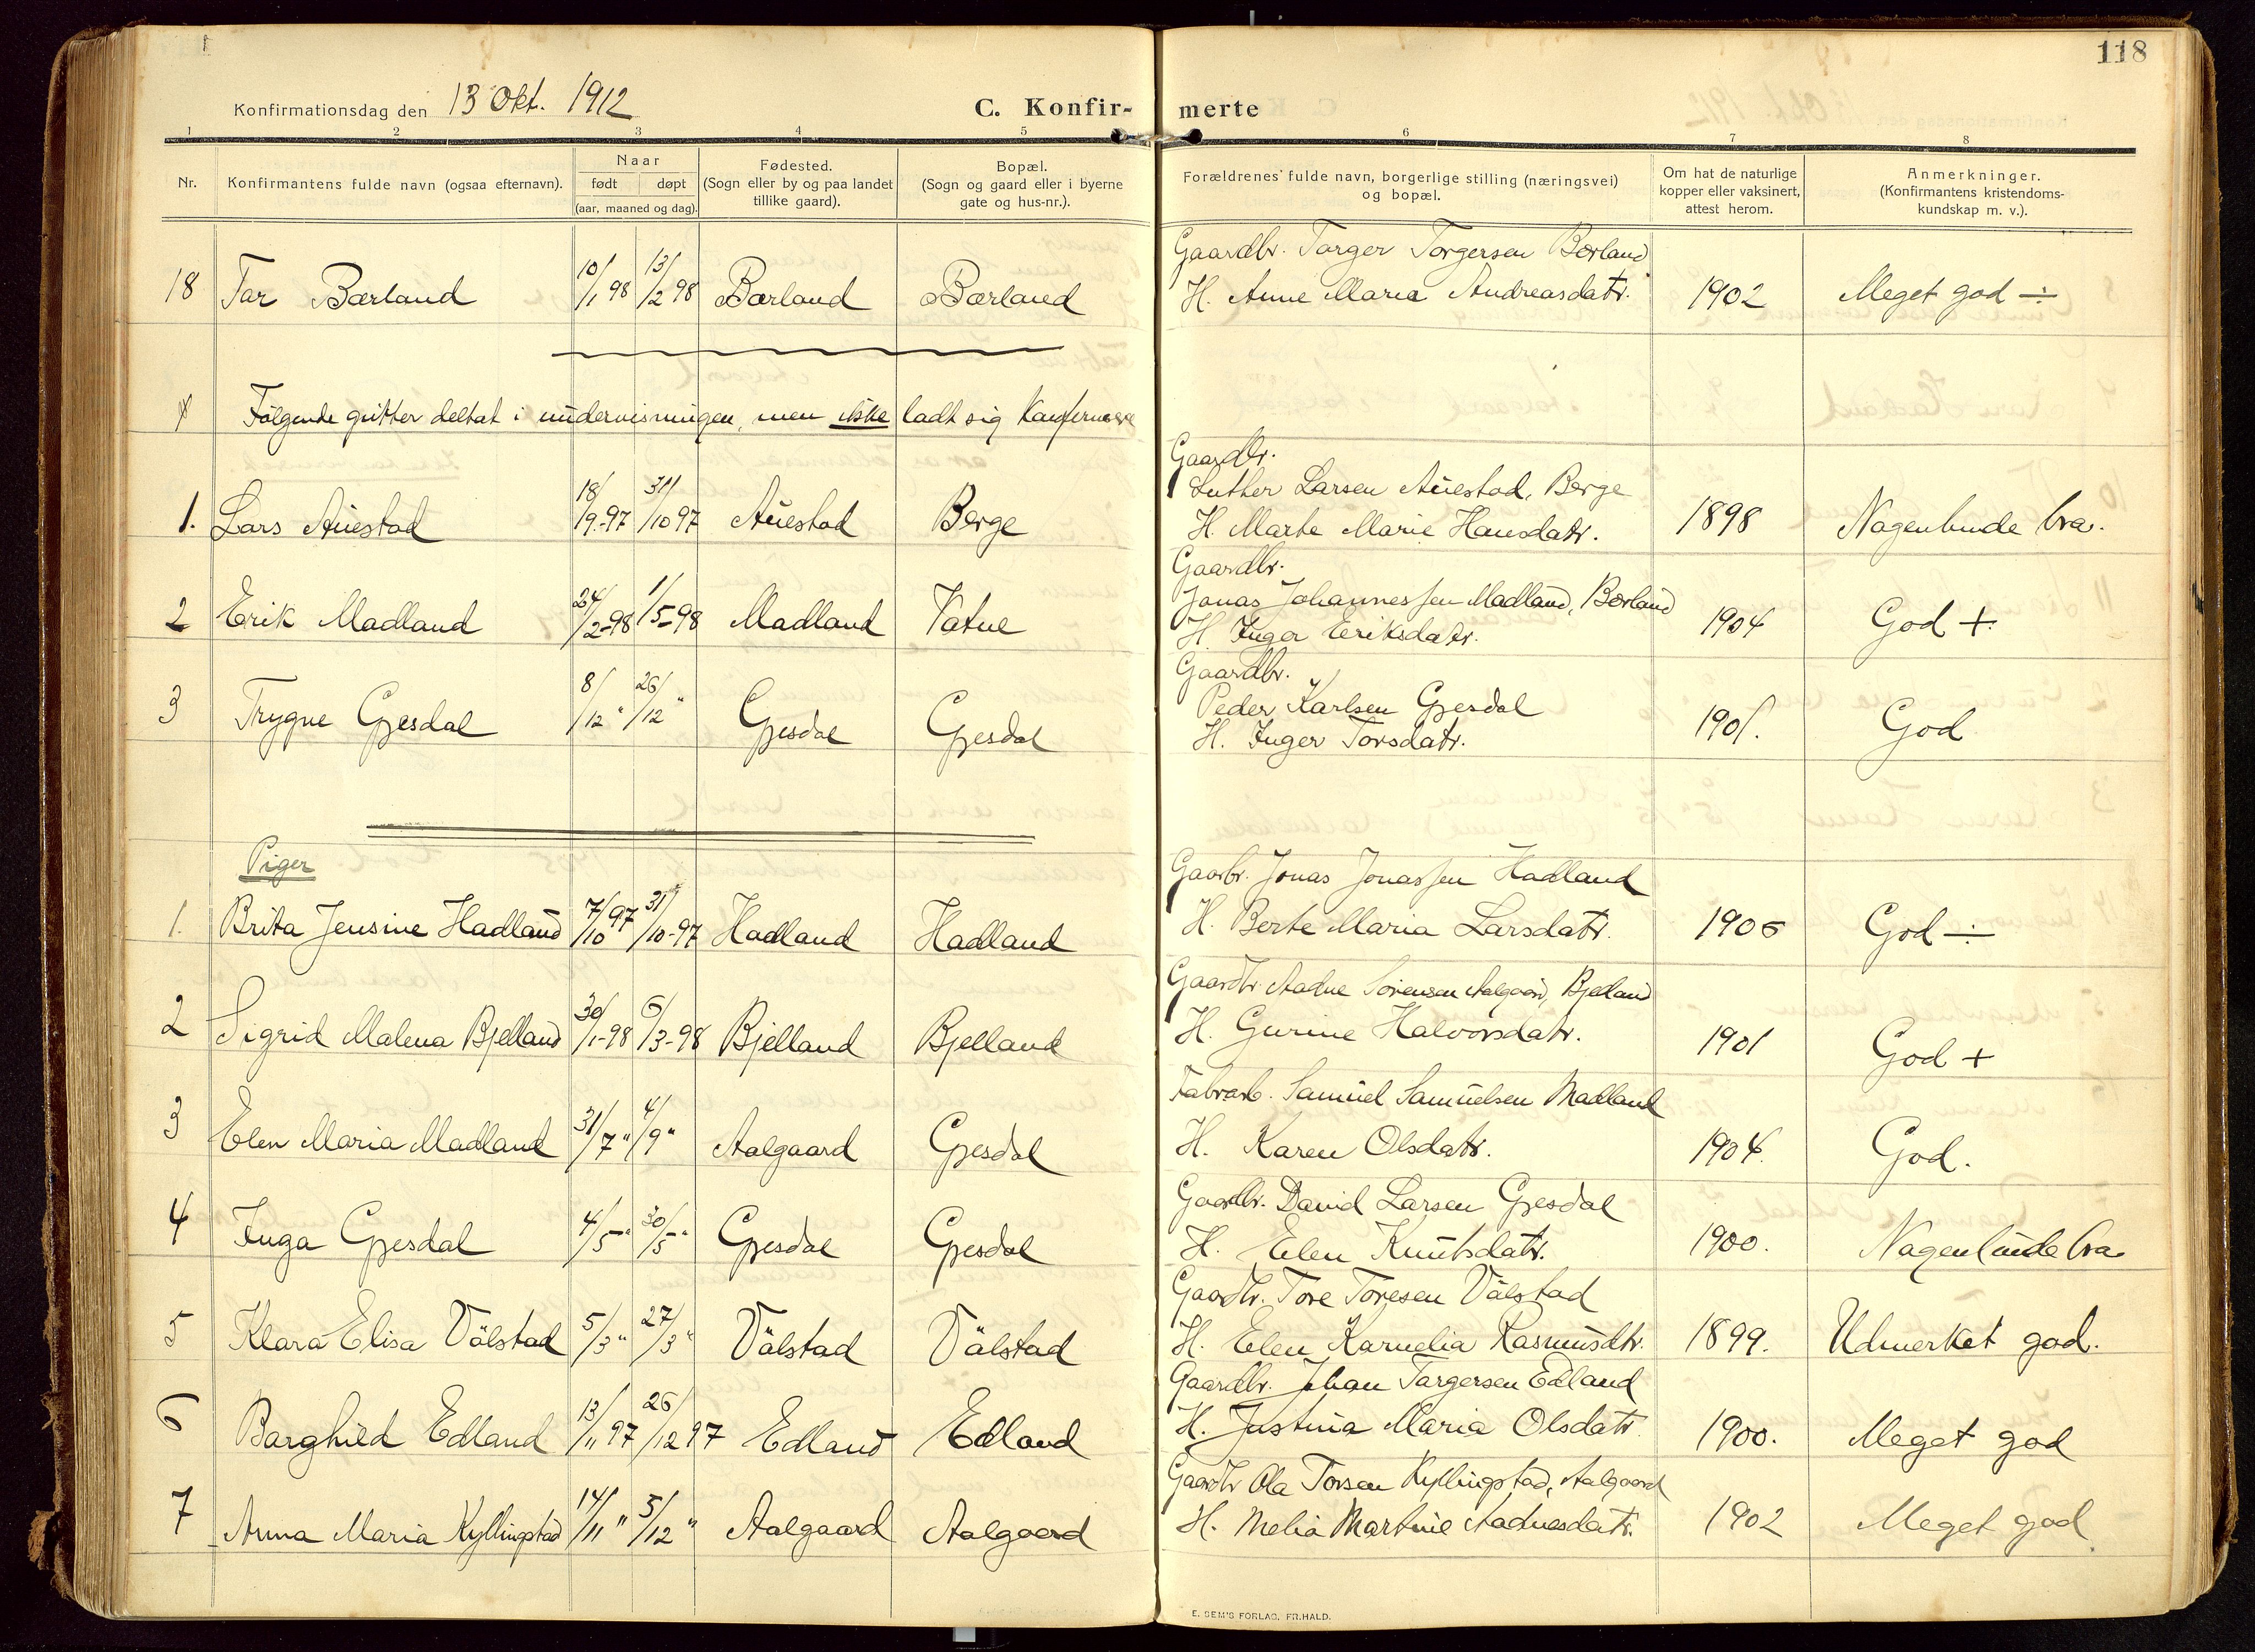 118
Konfirmationsdag den 13 Okt. 1912
C. Konfir- merte
1 2 3 4 5 6 7 8
Nr.
Konfirmantens fulde navn (ogsaa efternavn).
Naar
født døpt
(aar, maaned og dag).
Fødested.
(Sogn eller by og paa landet
tillike gaard).
Bopæl.
(Sogn og gaard eller i byerne
gate og hus-nr.).
Forældrenes fulde navn, borgerlige stilling (næringsvei)
og bopæl.
Om hat de naturlige
kopper eller vaksinert,
attest herom.
Anmerkninger.
(Konfirmantens kristendoms-
kundskap m. v.).
Gaardbr. Torger Torgersen Bærland
18 Tor Bærland 10/1 98 13/2 98 Bærland Bærland H. Anne Maria Andreasdatr. 1902 Meget god ÷
Følgende gutter deltat i undervisningen, men ikke ladt sig konfirmere
Gaardbr.
Luther Larsen Auestad, Berge
1. Lars Auestad 18/9-97 31/10 97 Auestad Berge H. Marte Marie Hansdatr. 1898 Nogenlunde bra.
Gaardbr.
Jonas Johannessen Madland, Bærland
2 Erik Madland 24/2-98 1/5-98 Madland Vatne H. Inger Eriksdatr. 1904 God +
Gaardbr.
Peder Karlsen Gjesdal
3 Trygve Gjesdal 8/12 " 26/12 " Gjesdal Gjesdal H. Inger Torsdatr. 1901. God
Piger
Gaarbr. Jonas Jonassen Hadland
1. Brita Jensine Hadland 7/10 97 31/10-97 Hadland Hadland H. Berte Maria Larsdatr. 1906 God ÷
Gaardbr Aadne Sørensen Aalgaard, Bjelland
2 Sigrid Malena Bjelland 30/1-98 6/3-98 Bjelland Bjelland H. Gurine Halvorsdatr. 1901 God +
Fabrarb. Samuel Samuelsen Madland
3 Elen Maria Madland 31/7 " 4/9 " Aalgaard Gjesdal H. Karen Olsdatr. 1904. God.
Gaardbr. David Larsen Gjesdal
4 Inga Gjesdal 4/5 " 30/5 " Gjesdal Gjesdal H. Elen Knutsdatr. 1900. Nogenlunde bra
Gaardbr. Tore Toresen Vålstad
5 Klara Elisa Vålstad 5/3 " 27/3 " Vålstad Vålstad H. Elen Karnelia Rasmusdtr. 1899. Udmerket god.
Gaardbr. Johan Torgersen Edland
6 Borghild Edland 13/11 97 26/12 97 Edland Edland H. Justina Maria Olsdatr. 1900. Meget god
Gaardbr Ola Torsen Kyllingstad, Aalgaard
7 Anna Maria Kyllingstad 14/11 " 5/12 " Aalgaard Aalgaard H. Melia Martine Aadnesdatr. 1902 Meget god
E. SEM'S FORLAG. FR.HALD.